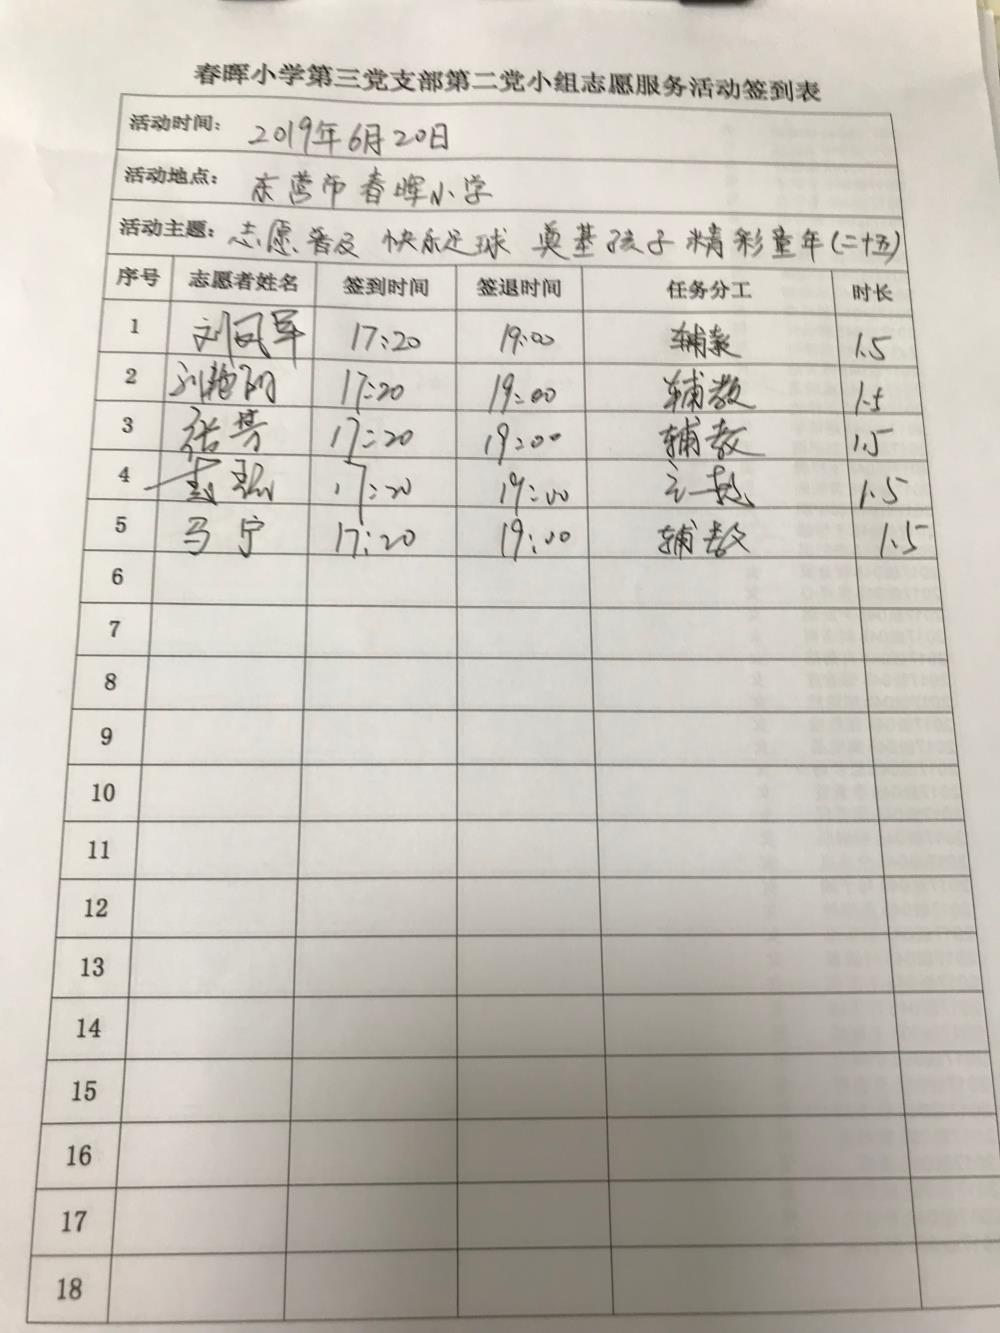 春晖小学第三党支部第二党小组志愿服务活动签到表
活动时间： 2019年6月20日
活动地点： 东营市春晖小学
活动主题： 志愿普及 快乐足球 奠基孩子精彩童年(二十五)
序号 志愿者姓名 签到时间 签退时间 任务分工 时长
1 刘凤军 17:20 19:00 辅教 1.5
2 17:20 19:00 辅教 1.5
3 张芳 17:20 19:00 辅教 1.5
4 17:20 19:00 主教 1.5
5 马宁 17:20 19:00 辅教 1.5
6
7
8
9
10
11
12
13
14
15
16
17
18